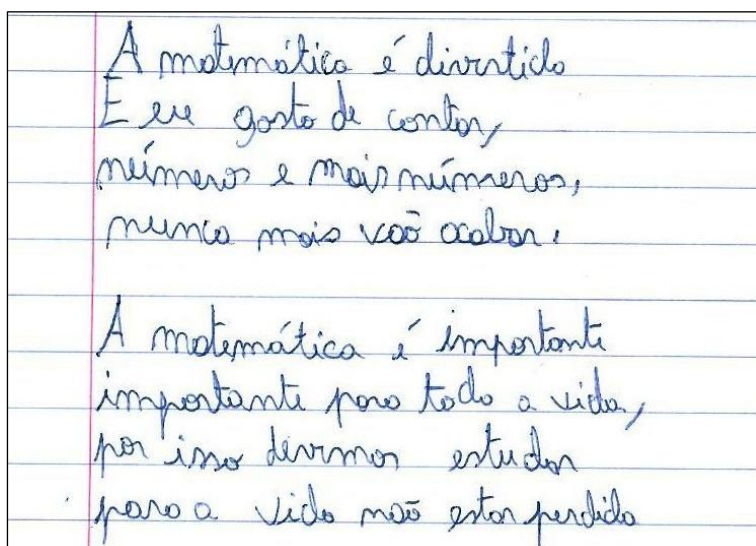 A matemática é divertida
E eu gosto de contar,
números e mais números,
nunca mais vão acabar.
A matemática é importante
importante para toda a vida,
por isso devemos estudar
para a vida não estar perdida